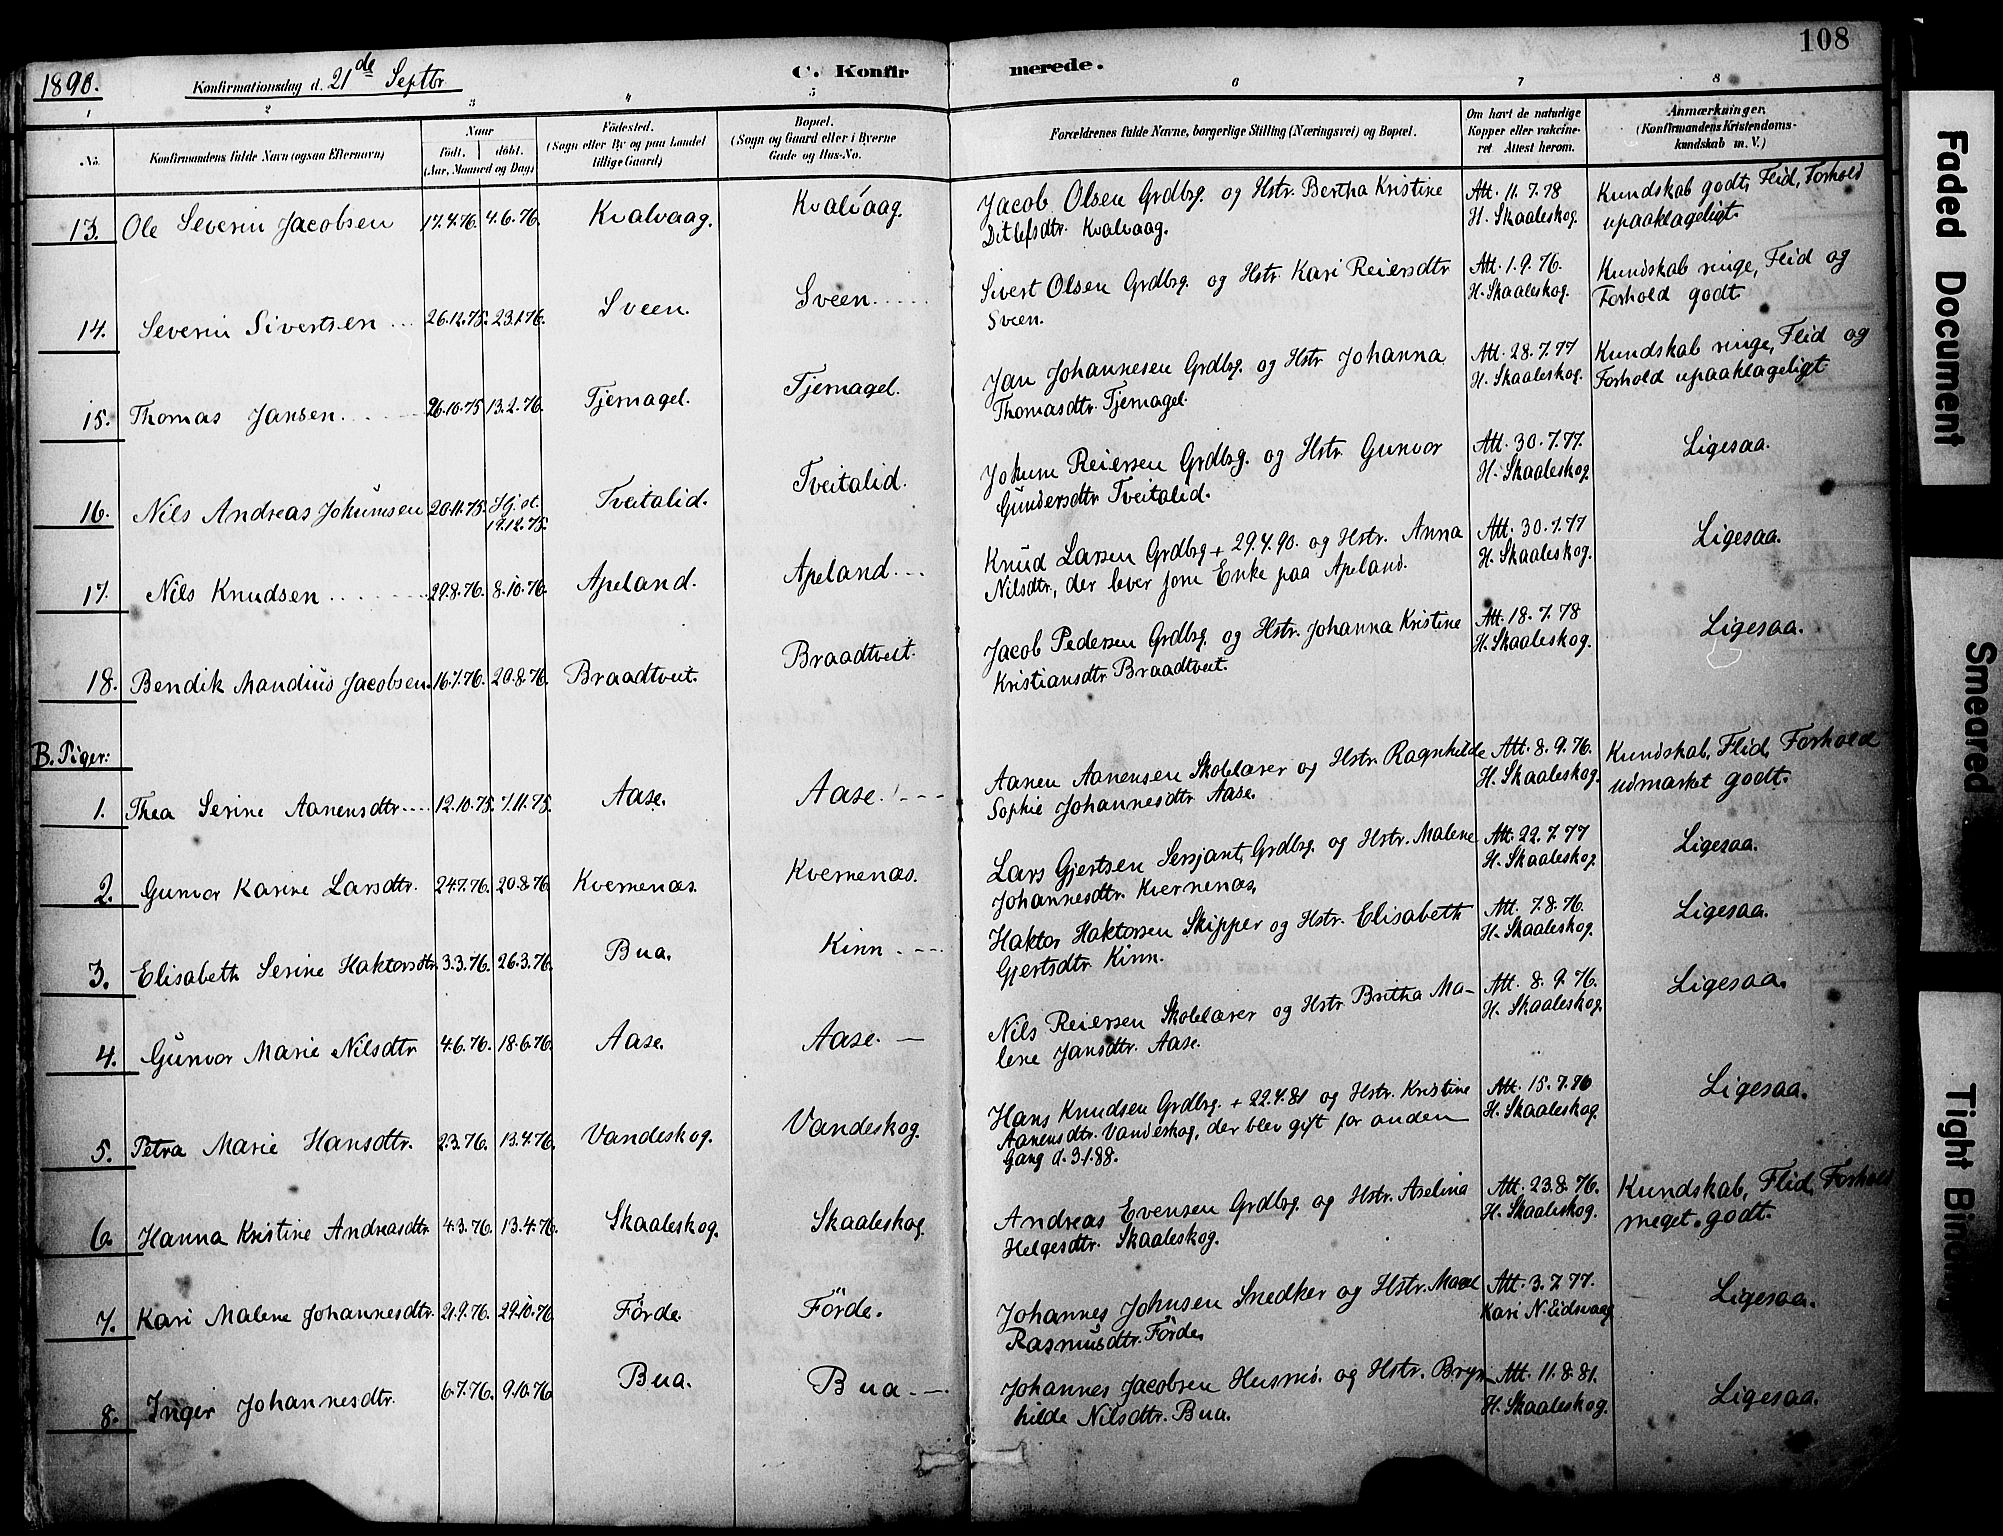 108
1890. Konfirmationsdag d. 21de Septbr C. Konfirmerede.
1 2 3 4 5 6 7 8
No. Konfirmandens fulde Navn (ogsaa Efternavn) Naar Født. døbt. (Aar, Maaned og Dag) Fødested. (Sogn eller By og paa Landet tillige Gaard) Bopæl. (Sogn og Gaard eller i Byerne Gade og Hus-No. Forældrenes fulde Navne, borgerlige Stilling (Næringsvei) og Bopæl. Om havt de naturlige Kopper eller vakcineret. Attest herom. Anmærkninger. (Konfirmandens Kristendomskundskab m. V.)
13. Ole Severin Jacobsen 17.4.76. 4.6.76. Kvalvaag. Kvalvaag. Jacob Olsen Grdbrg. og Hstr. Bertha Kristine Att. 11.7.78 Kundskab godt, Flid, Forhold
Ditlefsdtr. Kvalvaag. H. Skaaleskog. upaaklageligt.
14. Severin Sivertsen 26.12.75. 23.1.76. Sveen. Sveen. Sivert Olsen Grdbrg. og Hstr. Kari Reiersdtr Att. 1.9.76. Kundskab ringe, Flid og
Sveen. H. Skaaleskog. Forhold godt.
15. Thomas Jansen 26.10.75 13.2.76. Tjernagel. Tjernagel. Jan Johannesen Grdbrg. og Hstr. Johanna Att. 28.7.77 Kundskab ringe, Flid og
Thomasdtr. Tjernagel. H. Skaaleskog. Forhold upaaklageligt
16. Nils Andreas Johumsen 20.11.75. Hj. d. 19.12.75. Tveitalid. Tveitalid. Johum Reiersen Grdbrg. og Hstr. Gunvor Att. 30.7.77. Ligesaa.
Gundersdtr. Tveitalid. H. Skaaleskog.
17. Nils Knudsen 29.8.76. 8.10.76. Apeland. Apeland. Knud Larsen Grdbrg + 29.4.90. og Hstr. Anna Att. 30.7.77 Ligesaa.
Nilsdtr., der lever som Enke paa Apeland. H. Skaaleskog.
18. Bendik Mandius Jacobsen 16.7.76. 20.8.76. Braadtveit. Braadtveit. Jacob Pedersen Grdbrg. og Hstr. Johanna Kristine Att. 18.7.78 Ligesaa.
Kristiansdtr. Braadtveit. H. Skaaleskog.
B. Piger:
1. Thea Serine Aanensdtr 12.10.75. 7.11.75. Aase. Aase. Aanen Aanensen Skolelærer og Hstr. Ragnhilde Att. 8.9.76. Kundskab, Flid, Forhold
Sophie Johannesdtr. Aase. H. Skaaleskog. udmærket godt.
2. Gunvor Karine Larsdtr. 24.7.76. 20.8.76. Kvernenæs. Kvernenæs. Lars Gjertsen Sersjant, Grdbrg. og Hstr. Malene Att. 22.7.77 Ligesaa.
Johannesdtr. Kvernenæs. H. Skaaleskog
3. Elisabeth Serine Haktorsdtr. 3.3.76. 26.3.76. Bua. Kinn. Haktor Haktorsen Skipper og Hstr. Elisabeth Att. 7.8.76. Ligesaa.
Gjertsdtr. Kinn. H. Skaaleskog.
4. Gunvor Marie Nilsdtr 4.6.76. 18.6.76. Aase. Aase. Nils Reiersen Skolelærer og Hstr. Britha Ma- Att. 8.9.76. Ligesaa.
lene Jansdtr. Aase. H. Skaaleskog.
5. Petra Marie Hansdtr. 2.3.76. 13.4.76. Vandeskog. Vandeskog. Hans Knudsen Grdbrg. + 22.4.81 og Hstr. Kristine Att. 15.7.76 Ligesaa.
Aanensdtr. Vandeskog, der blev gift for anden H. Skaaleskog.
Gang d. 3.1.88.
6. Hanna Kristine Andreasdtr 4.3.76. 13.4.76. Skaaleskog. Skaaleskog. Andreas Evensen Grdbrg. og Hstr. Aselina Att. 23.8.76. Kundskab, Flid, Forhold
Helgesdtr. Skaaleskog. H. Skaaleskog. meget godt.
7. Kari Malene Johannesdtr. 21.9.76. 29.10.76 Førde. Førde. Johannes Johnsen Snedker og Hstr. Att. 3.7.77. Ligesaa.
Rasmusdtr. Førde. Kari N. Eidsvaag
8. Inger Johannesdtr. 6.7.76. 9.10.76 Bua. Bua Johannes Jacobsen Husmd. og Hstr. Bryn- Att. 11.8.81. Ligesaa.
hilde Nilsdtr. Bua. H. Skaaleskog.
Faded Document
Smeared
Tight Binding